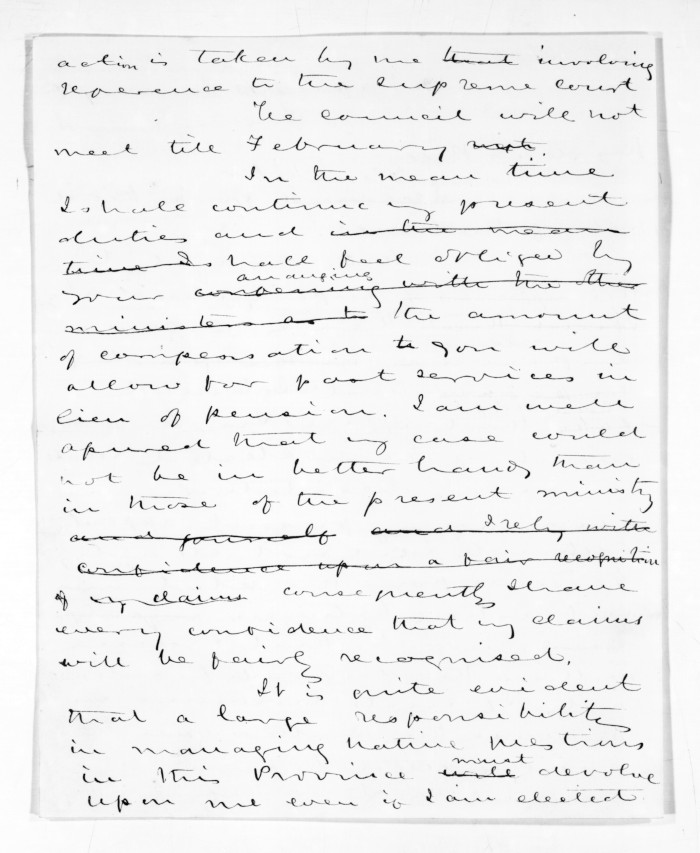 action is taken by me that involving
reference to the supreme court
The council will not
meet till February next.
In the mean time
I shall continue my present
duties and in the mean
time I shall feel obliged by
your arranging conferring with the other
ministers as to the amount
of compensation to you will
allow for past services in
lieu of pension. I am well
assured that my case could
not be in better hands than
in those of the present ministry
and yourself and I rely with
confidence upon a fair recognition
of my claims consequently I have
every confidence that my claims
will be fairly recognised.
It is quite evident
that a large responsibility
in managing native questions
in this Province will must devolve
upon me even if I am elected